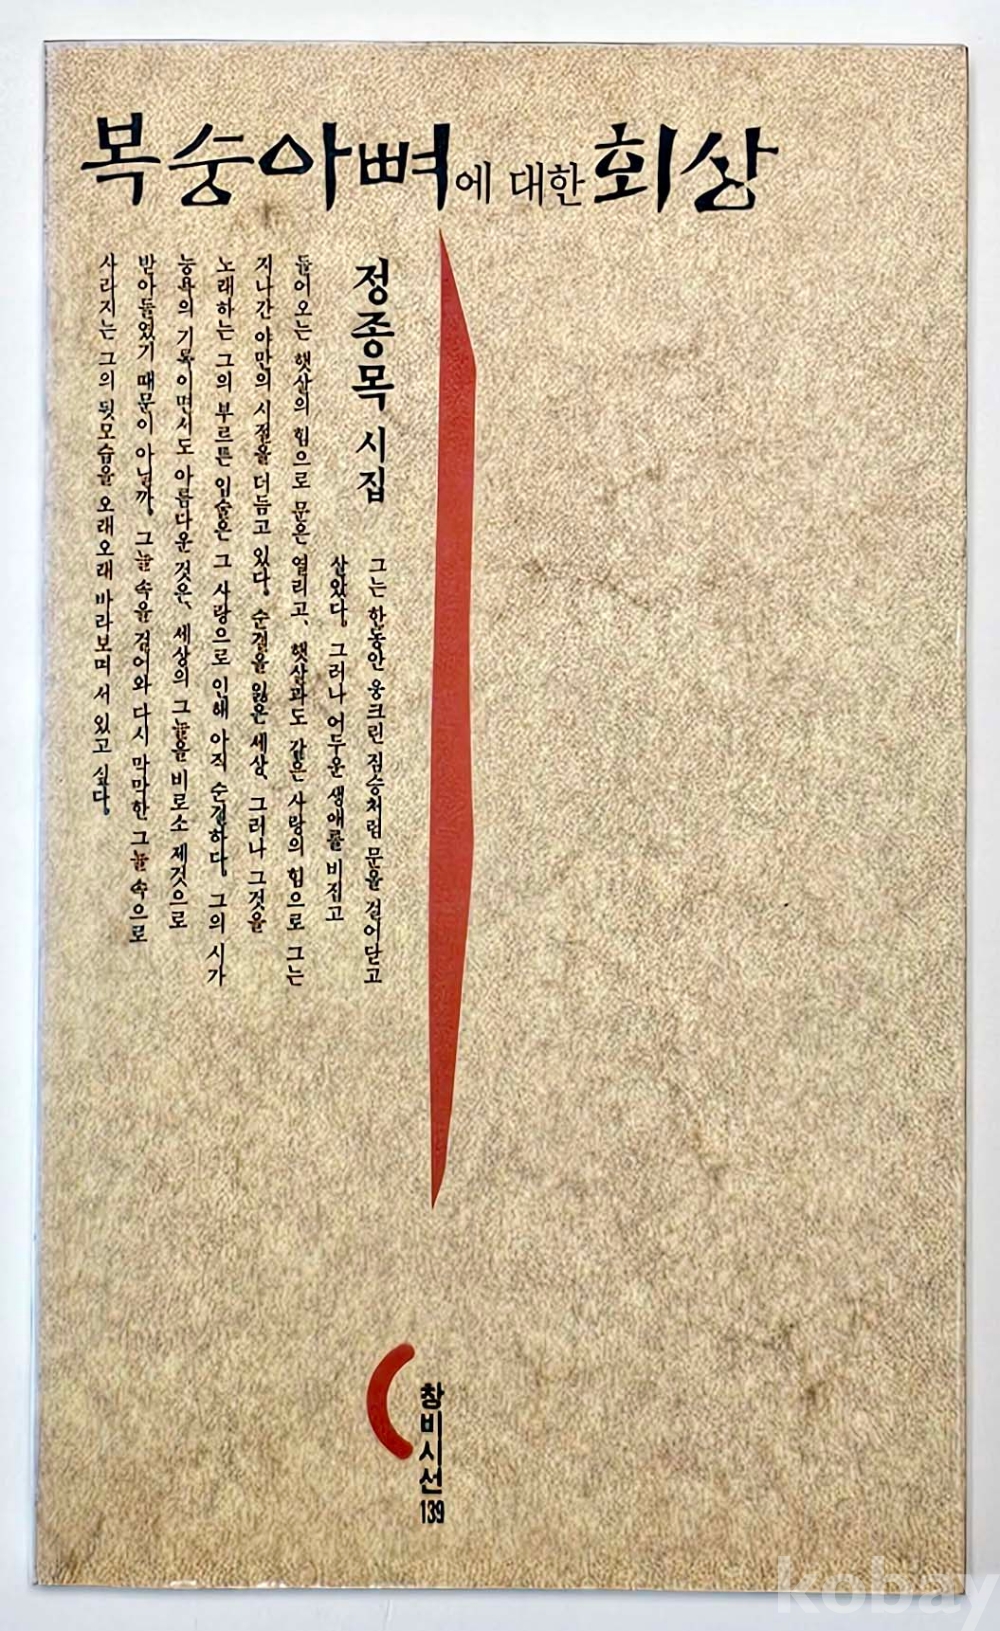 복숭아뼈에 대한 회상
정종목 시집
그는 한동안 웅크린 짐승처럼 문을 걸어닫고
살았다. 그러나 어두운 생애를 비집고
들어오는 햇살의 힘으로 문은 열리고, 햇살과도 같은 사랑의 힘으로 그는
지나간 야만의 시절을 더듬고 있다. 순결을 잃은 세상, 그러나 그것을
노래하는 그의 부르튼 입술은 그 사랑으로 인해 아직 순결하다. 그의 시가
능욕의 기록이면서도 아름다운 것은, 세상의 그늘을 비로소 제것으로
받아들였기 때문이 아닐까. 그늘 속을 걸어와 다시 막막한 그늘 속으로
사라지는 그의 뒷모습을 오래오래 바라보며 서 있고 싶다.
창비시선
139
kobay